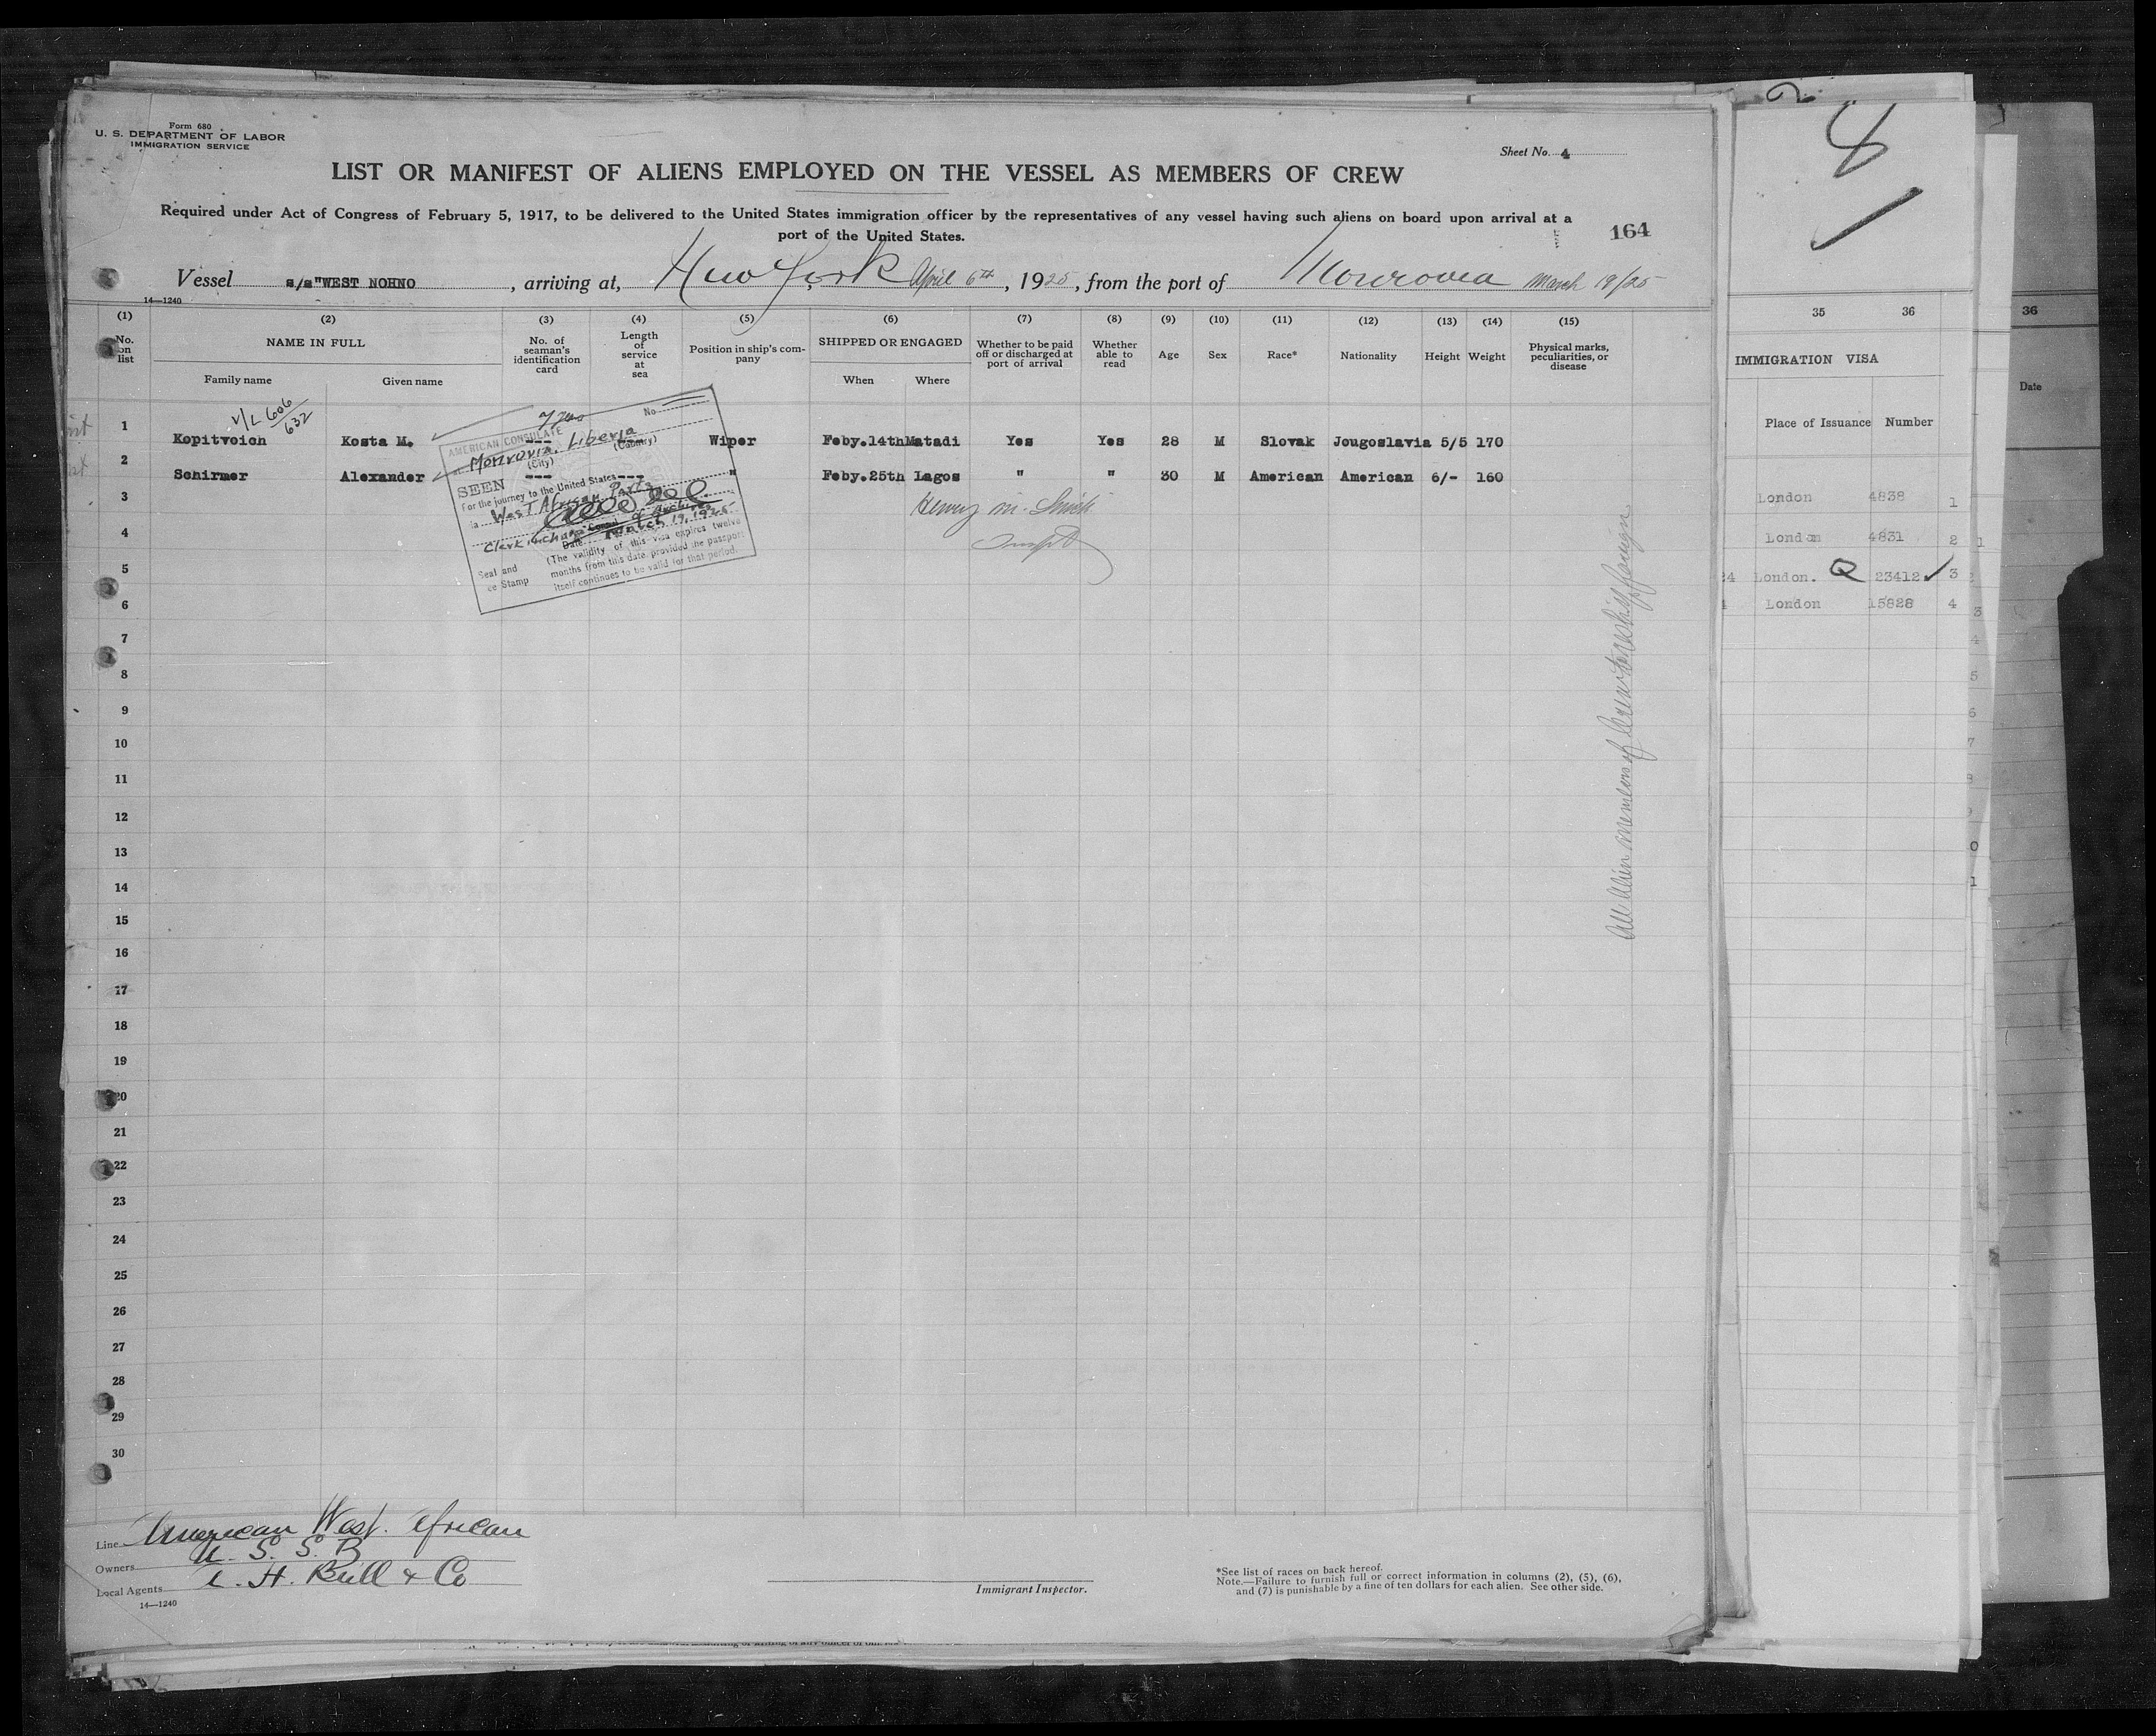 Form 680
U. S. DEPARTMENT OF LABOR
IMMIGRATION SERVICE
Sheet No. 4
LIST OR MANIFEST OF ALIENS EMPLOYED ON THE VESSEL AS MEMBERS OF CREW
Required under Act of Congress of February 5, 1917, to be delivered to the United States immigration officer by the representatives of any vessel having such aliens on board upon arrival at a
port of the United States.
164
Vessel s/s "WEST NOHNO , arriving at, New York April 6th , 1925 , from the port of Monrovia March 19/25
14—1240
(1) (2) (3) (4) (5) (6) (7) (8) (9) (10) (11) (12) (13) (14) (15)
No. on list
NAME IN FULL
Family name Given name
No. of seaman's identification card
Length of service at sea
Position in ship's company
SHIPPED OR ENGAGED
When Where
Whether to be paid off or discharged at port of arrival
Whether able to read
Age
Sex
Race*
Nationality
Height
Weight
Physical marks, peculiarities, or disease
V/L 606/632
1 Kopitvoich Kosta M. --- 7 yrs Wiper Feby.14th Matadi Yes Yes 28 M Slovak Jougoslavia 5/5 170
2 Schirmer Alexander --- --- " Feby.25th Lagos " " 30 M American American 6/- 160
No
AMERICAN CONSULATE
Monrovia, Liberia
(City) (Country)
SEEN
For the journey to the United States
via West African Ports
Date March 19, 1925
(The validity of this visa expires twelve
months from this date, provided the passport
itself continues to be valid for that period.
Seal and
Stamp
Henry M.
3
4
5
6
7
8
9
10
11
12
13
14
15
16
17
18
19
20
21
22
23
24
25
26
27
28
29
30
All Alien members of Crew to reship foreign
Line American West African
Owners U. S. S. B
Local Agents A. H. Bull & Co
14—1240
Immigrant Inspector.
*See list of races on back hereof.
Note.—Failure to furnish full or correct information in columns (2), (5), (6),
and (7) is punishable by a fine of ten dollars for each alien. See other side.
35 36
IMMIGRATION VISA
Place of Issuance Number
London 4838 1
London 4831 2
24 London. Q 23412 ✓ 3
London 15828 4
36
Date